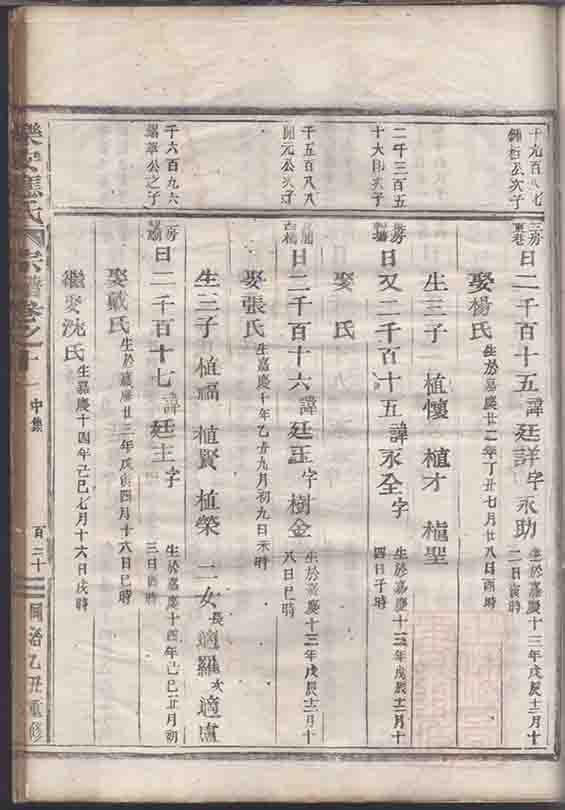 千九百八七
錦松公次子
三房東巷
日二千百十五諱廷詳字永助
生於嘉慶十三年戊辰十二月十
二日寅時
娶楊氏
生於嘉慶廿二年丁丑七月廿八日酉時
生三子 植懷 植才 植聖
二千三百五
十六
次子
房
日又二千百十五諱永全字
生於嘉慶十三年戊辰十二月十
四日子時
娶 氏
千五百八八
開元公次子
日二千百十六諱廷玉字樹金
生於嘉慶十三年戊辰十二月十
八日巳時
娶張氏
生嘉慶十年乙丑九月初九日未時
生三子 植福 植賢 植榮 二女
長適羅 次適盧
千六百九六
華公之子
二房
日二千百十七諱廷主字
生於嘉慶十四年己巳十一月初
三日酉時
娶戴氏
生於嘉慶廿三年戊寅四月十六日巳時
繼娶沈氏
生嘉慶十四年己巳七月十六日戌時
樂安蔣氏宗譜卷之十一
中集
百二十
同治乙丑重修